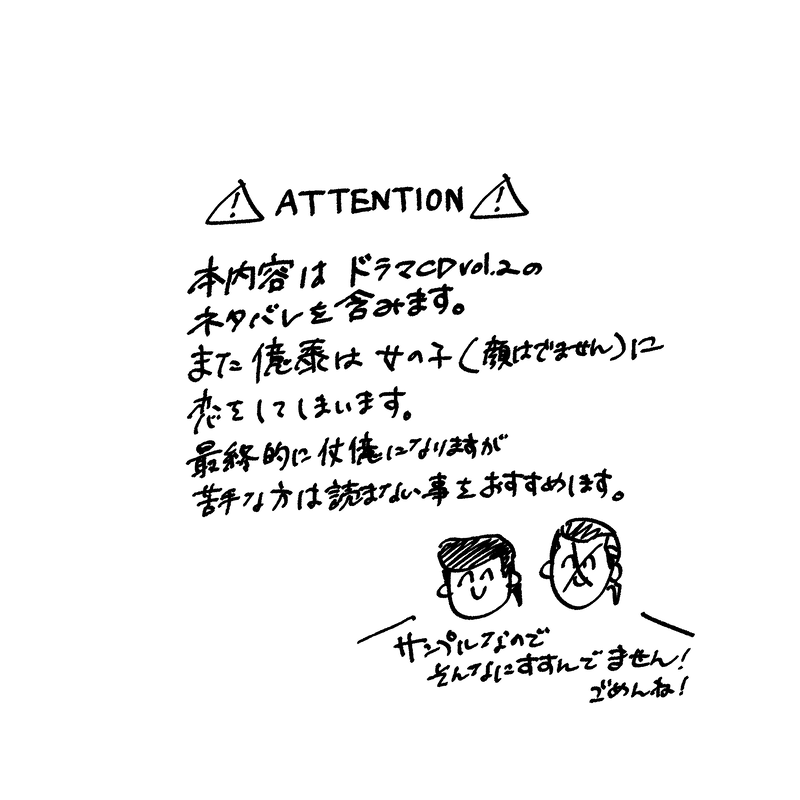 ⚠ ATTENTION ⚠
本内容は ドラマCDvol.2の
ネタバレを含みます。
また億泰は 女の子(顔はでません)に
恋をしてしまいます。
最終的に仗億になりますが
苦手な方は読まない事をおすすめします。
サンプルなので
そんなにすすんでません!
ごめんね!